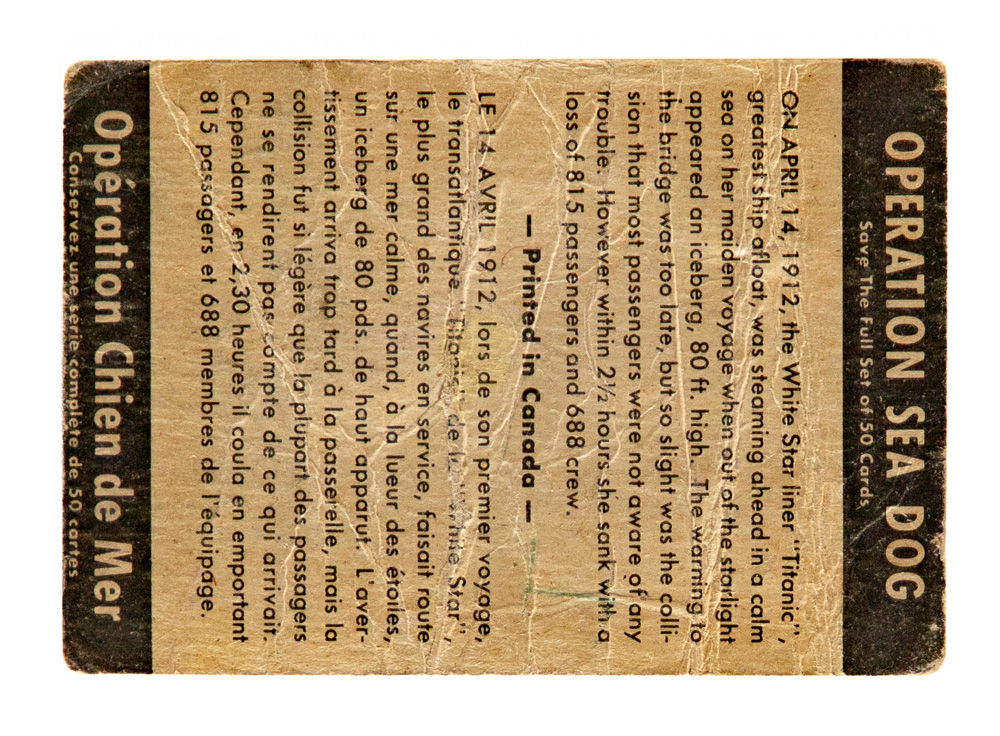 OPERATION SEA DOG
Save The Full Set of 50 Cards
ON APRIL 14, 1912, the White Star liner "Titanic",
greatest ship afloat, was steaming ahead in a calm
sea on her maiden voyage when out of the starlight
appeared an iceberg, 80 ft. high. The warning to
the bridge was too late, but so slight was the colli-
sion that most passengers were not aware of any
trouble. However within 2½ hours she sank with a
loss of 815 passengers and 688 crew.
— Printed in Canada —
LE 14 AVRIL 1912, lors de son premier voyage,
le transatlantique "Titanic" de la Star",
le plus grand des navires en service, faisait route
sur une mer calme, quand, à la lueur des étoiles,
un iceberg de 80 pds. de haut apparut. L'aver-
tissement arriva trop tard à la passerelle, mais la
collision fut si légère que la plupart des passagers
ne se rendirent pas compte de ce qui arrivait.
Cependant, en 2,30 heures il coula en emportant
815 passagers et 688 membres de l'équipage.
Opération Chien de Mer
Conservez une série complète de 50 cartes